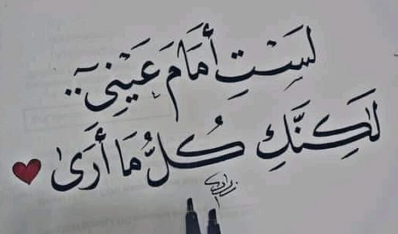 لَسْتِ أمَامَ عَيْنِي..
لَكِنَّكِ كُلُّ مَا أَرَى